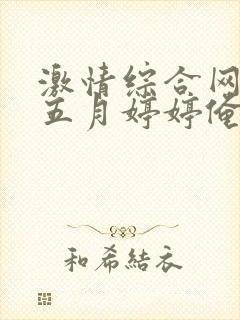 激情综合网
五月婷婷俺
和希結衣